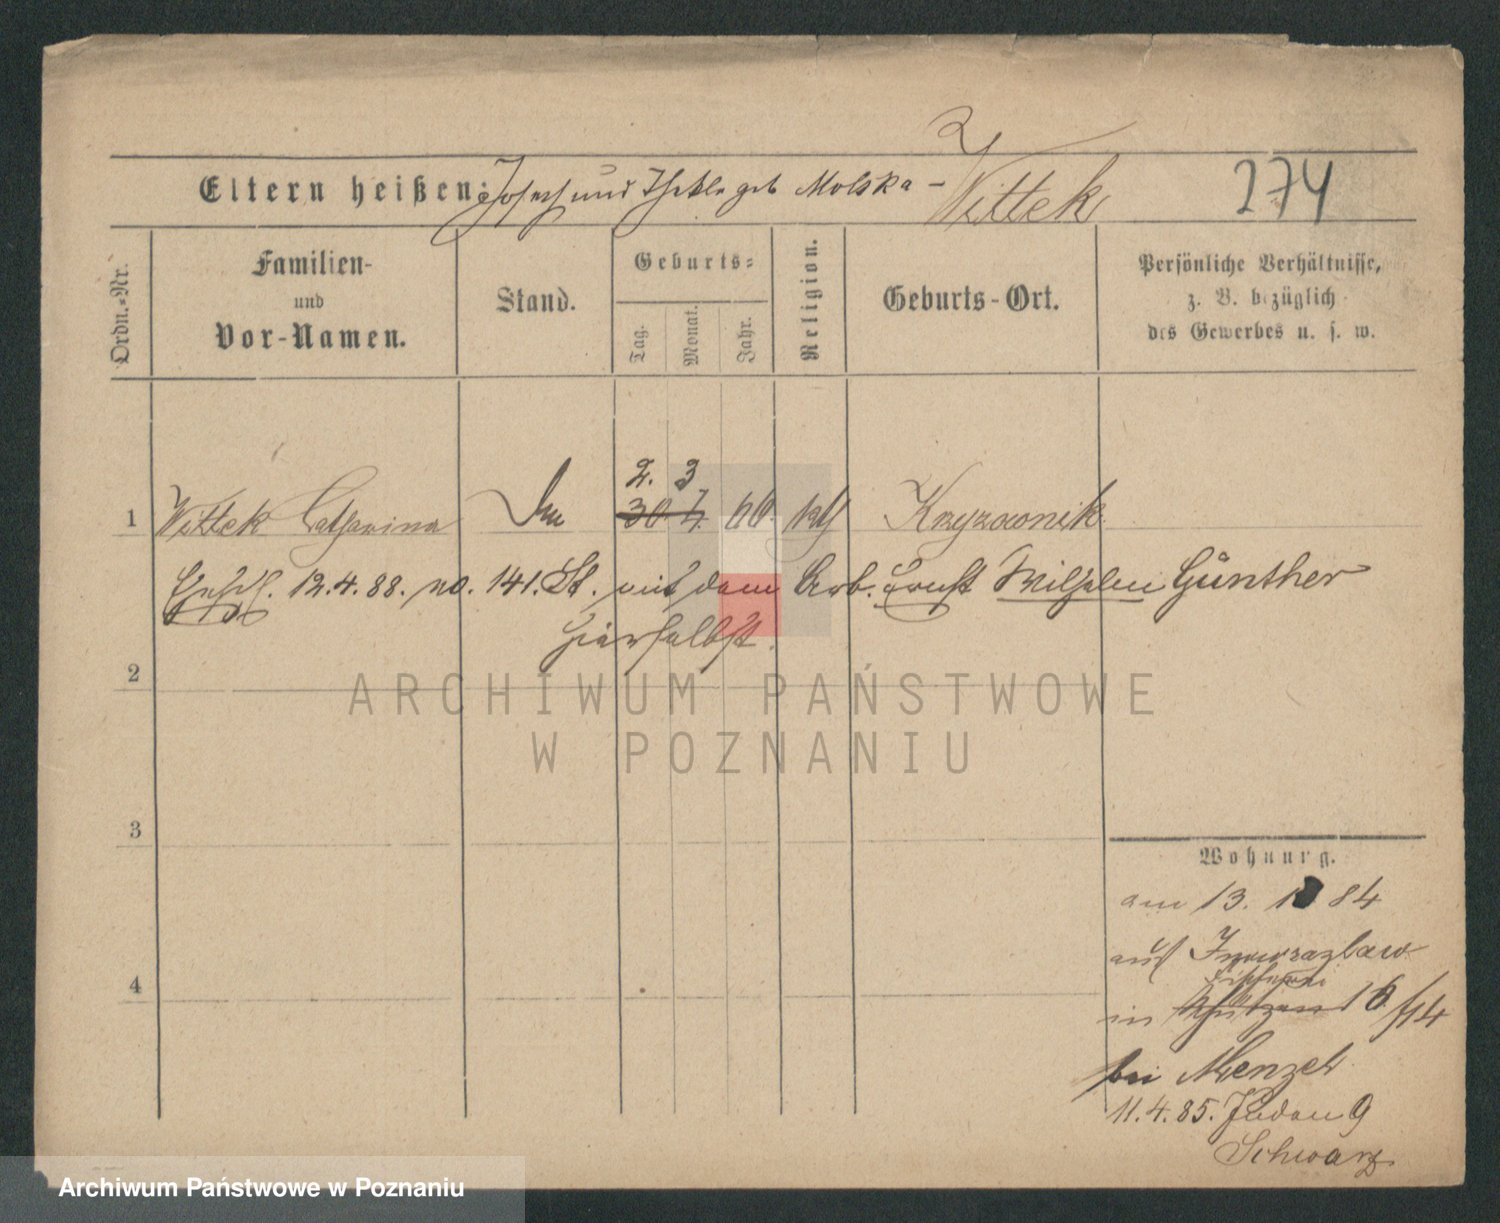 274
Eltern heißen: Joseph und Thekla geb Molska - Wittek
Ordn.-Nr.
Familien-
und
Vor-Namen.
Stand.
Geburts=
Tag.
Monat.
Jahr.
Religion.
Geburts-Ort.
Persönliche Verhältnisse,
z. B. bezüglich
des Gewerbes u. s. w.
2. 3
1 Wittek Catharina 30 60 kth Krzyzownik
Ehesch. 12.4.88. no. 141. St. mit dem Arb. Ernst Wilhelm Günther
hierselbst.
2
ARCHIWUM PAŃSTWOWE
W POZNANIU
3
Wohnung.
am 13. 84
aus Inowrazlaw
4
Fischerei
in Schützen 16/14
bei Menzel
11.4.85. Juden 9
Schwarz
Archiwum Państwowe w Poznaniu